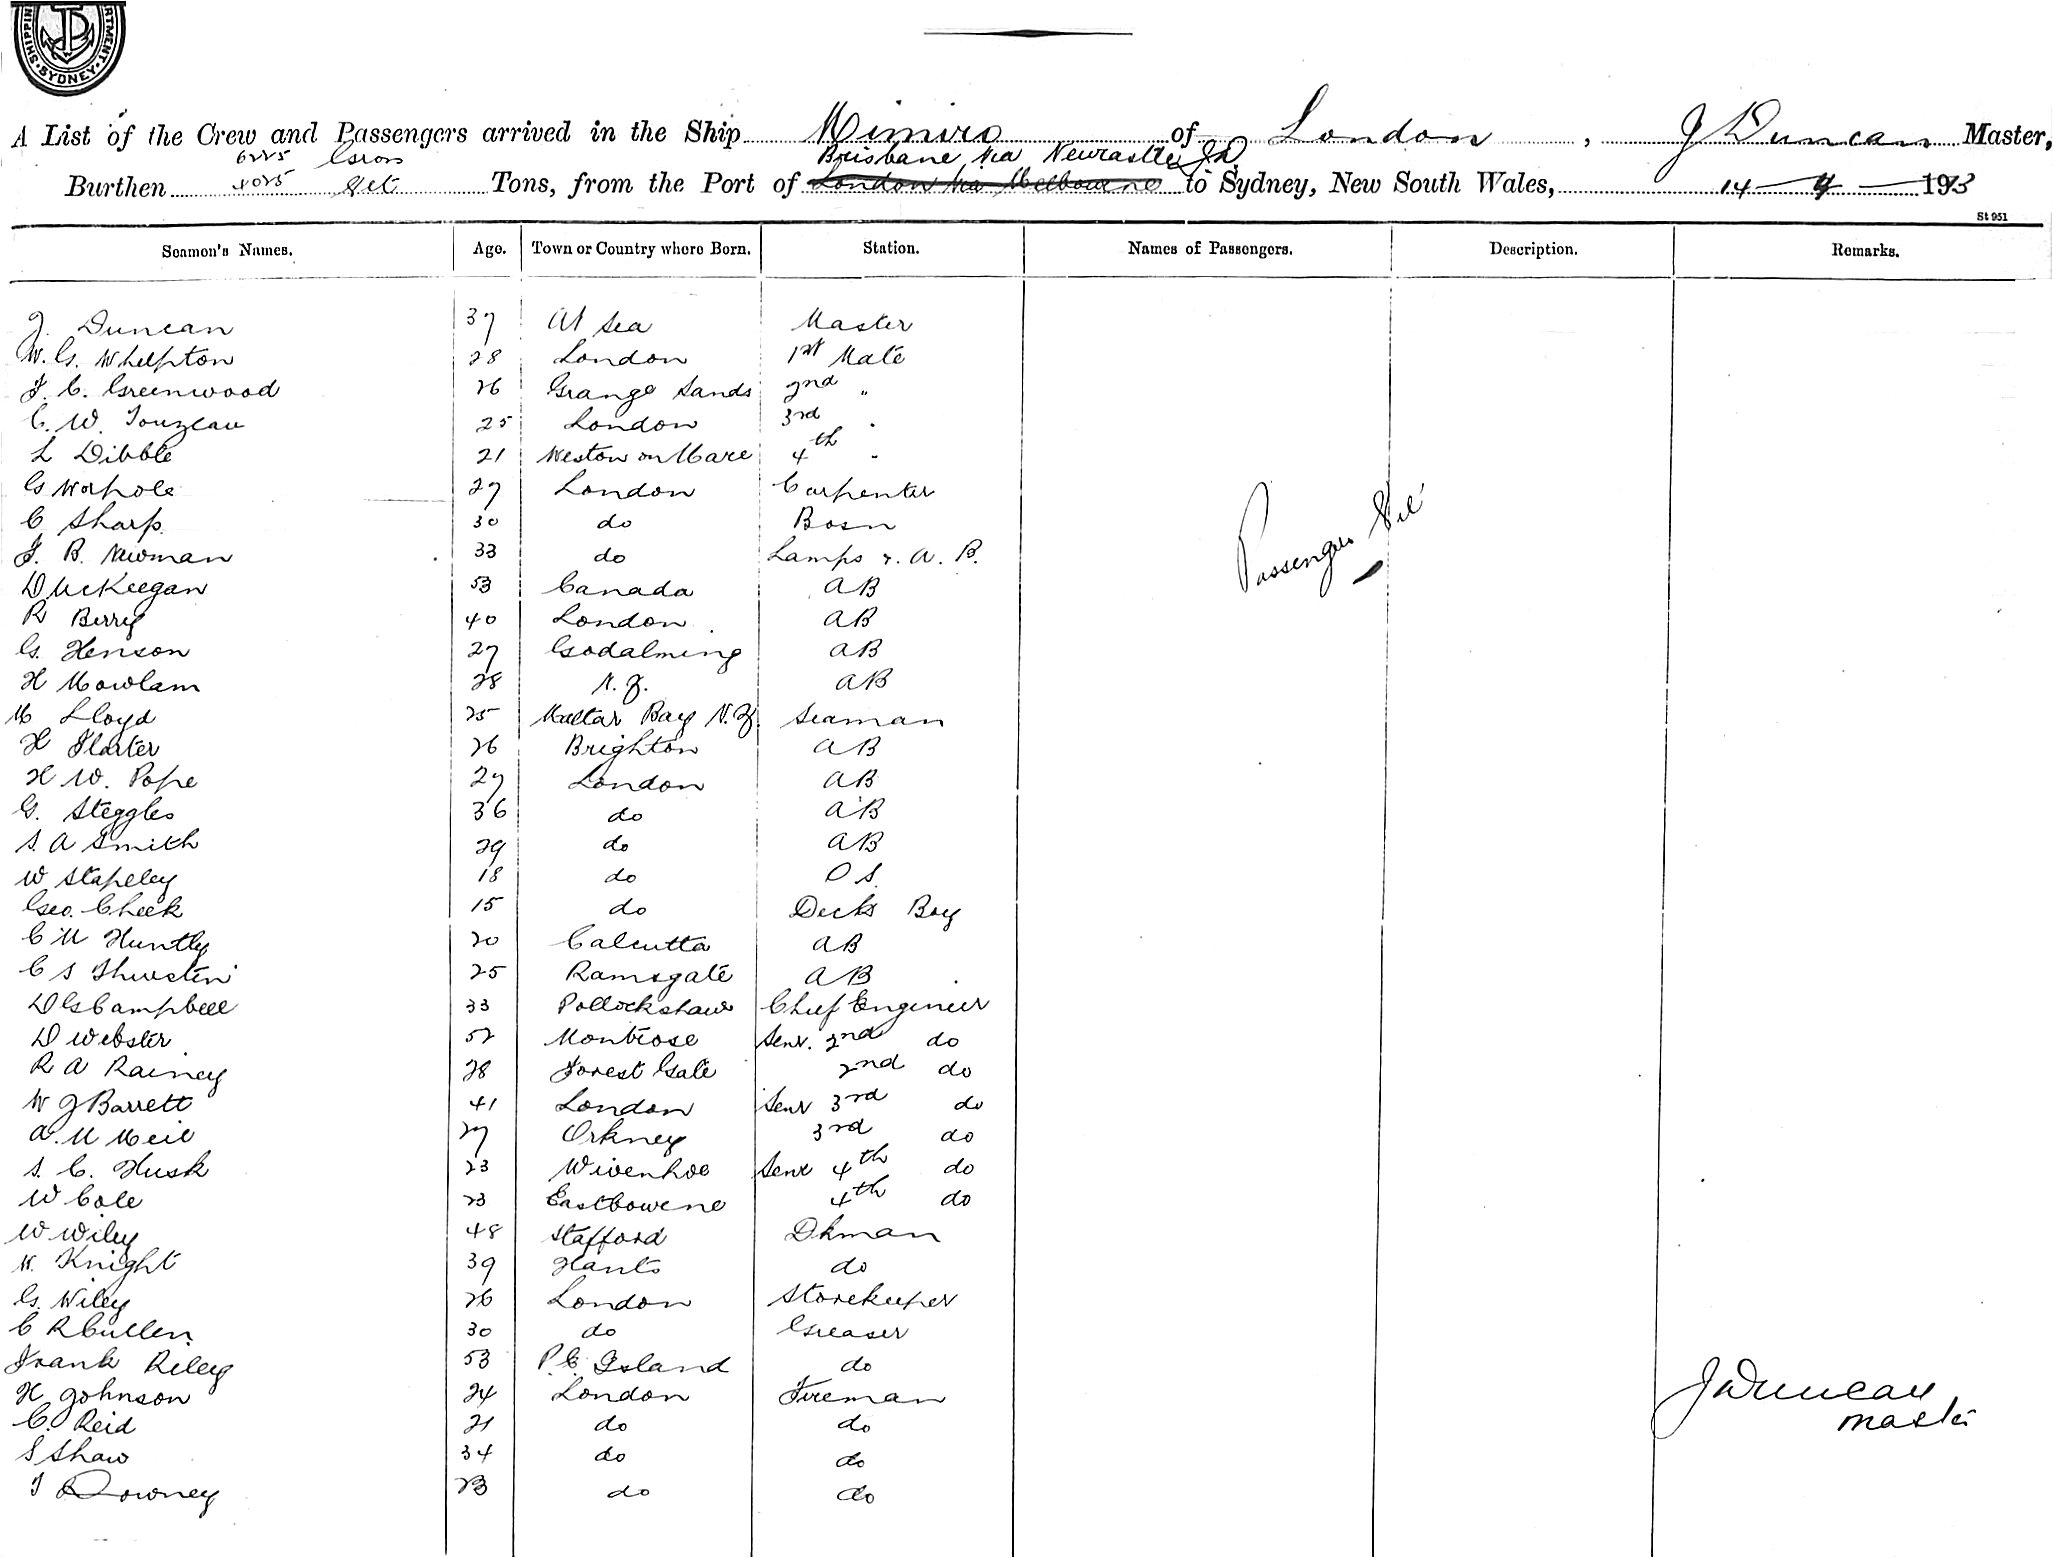 SHIPPIN RTMENT. SYDNEY.
A List of the Crew and Passengers arrived in the Ship Mimiro of London, J Duncan Master,
6225 Gross Brisbane via Newcastle JD
Burthen 4025 Net Tons, from the Port of London via Melbourne to Sydney, New South Wales, 14 - 4 - 1913
St 951
Seamen's Names. Age. Town or Country where Born. Station. Names of Passengers. Description. Remarks.
J. Duncan 37 At Sea Master
W. G. Whelpton 28 London 1st Mate
F. C. Greenwood 26 Grange Sands 2nd "
C. W. Touzeau 25 London 3rd "
L Dibble 21 Weston on Mare 4th "
G Warhole 27 London Carpenter
C Sharp. 30 do Bosn
F. B. Newman 33 do Lamps & A. B.
D McKeegan 53 Canada AB
R Berry 40 London AB
G. Henson 27 Godalming AB
H Mowlam 28 N. Z. AB
M Lloyd 25 Bay N. Z. Seaman
H Flarter 26 Brighton AB
H W. Pope 27 London AB
G. Steggles 36 do AB
S. A Smith 29 do AB
W Stapeley 18 do O S.
Geo. Cheek 15 do Decks Boy
C M Huntly 20 Calcutta AB
C S Thurstin 25 Ramsgate AB
D G Campbell 33 Pollockshaw Chief Engineer
D Webster 52 Montrose Senr. 2nd do
R A Rainey 28 Forest Gate 2nd do
W J Barrett 41 London Senr 3rd do
A. M Meil 27 Orkney 3rd do
S. C. Husk 23 Wivenhoe Senr 4th do
W Cole 23 Eastbowene 4th do
W Wiley 48 Stafford Dkman
W. Knight 39 Hants do
G. Wiley 26 London Storekeeper
C R Cullen 30 do Greaser
Frank Riley 53 P. E Island do
H Johnson 24 London Fireman
C. Reid 21 do do
S Shaw 34 do do
T Downey 23 do do
Passengers Nil
J Duncan
Master